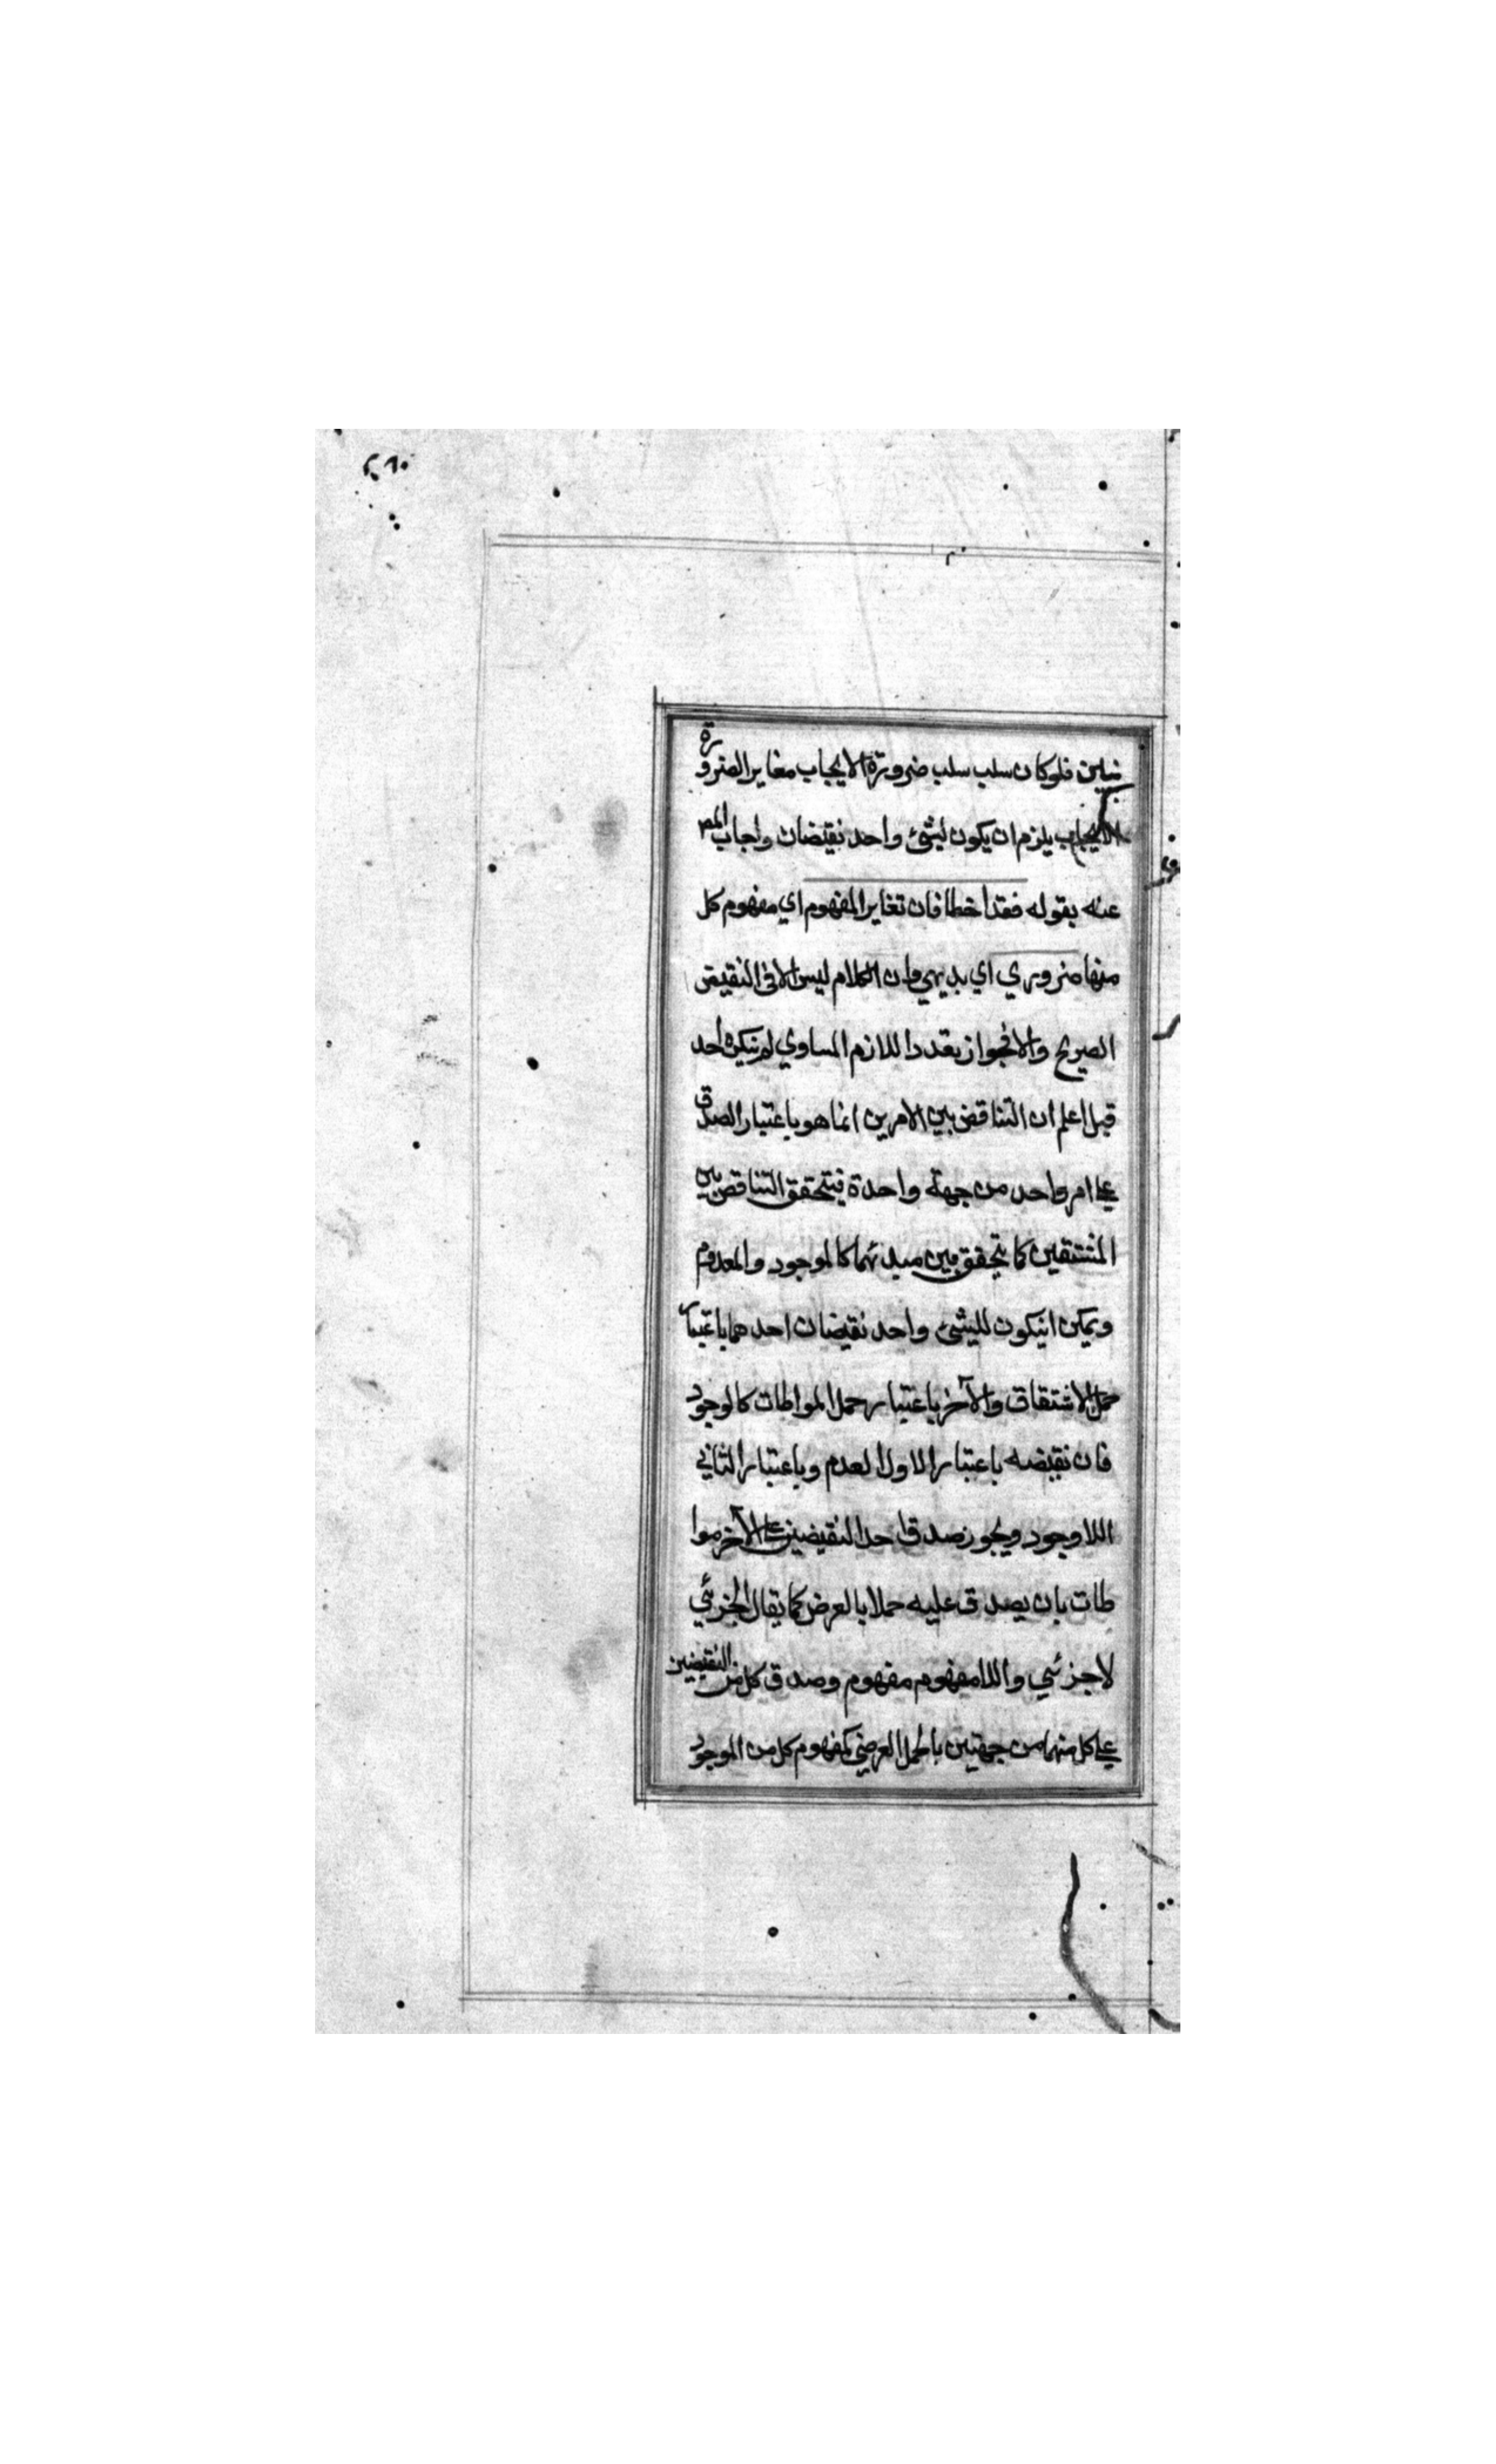 ٢٦٠
فلو كان سلب سلب ضرورة الايجاب مغاير الضرورة
الايجاب يلزم ان يكون لشئ واحد نقيضان واجاب المص
عنه بقوله فقد اخطا فان تغاير المفهوم اي مفهوم كل
منها ضروري اي بديهي وان الكلام ليس الا في النقيض
الصريح والا فجواز تعدد اللازم المساوي لم ينكره احد
قيل اعلم ان التناقض بين الامرين انما هو باعتبار الصدق
علي امر واحد من جهة واحدة فيتحقق التناقض بين
المشتقين كما يتحقق بين مبدئهما كالموجود والمعدوم
ويمكن انيكون لليشئ واحد نقيضان احدهما باعتبار
حمل الاشتقاق والآخر باعتبار حمل المواطات كالوجود
فان نقيضه باعتبار الاول العدم وباعتبار الثاني
اللاوجود ويجوز صدق احد النقيضين علي الآخر موا
طات بان يصدق عليه حملا بالعرض كما يقال الجزئي
لاجزئي واللامفهوم مفهوم وصدق كل من النقيضين
علي كل منهما من جهتين بالحمل العرضي كمفهوم كل من الموجود